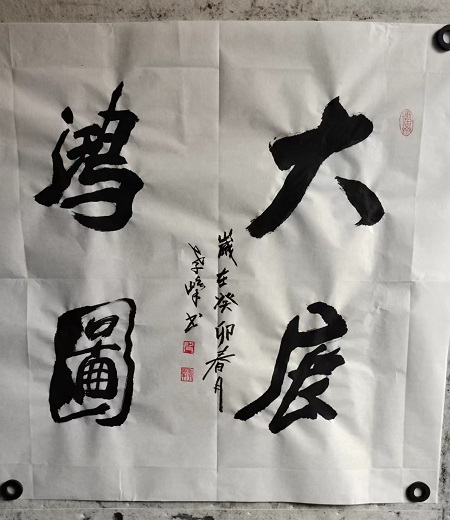 大展
鸿圖
歲在癸卯春月
峰书